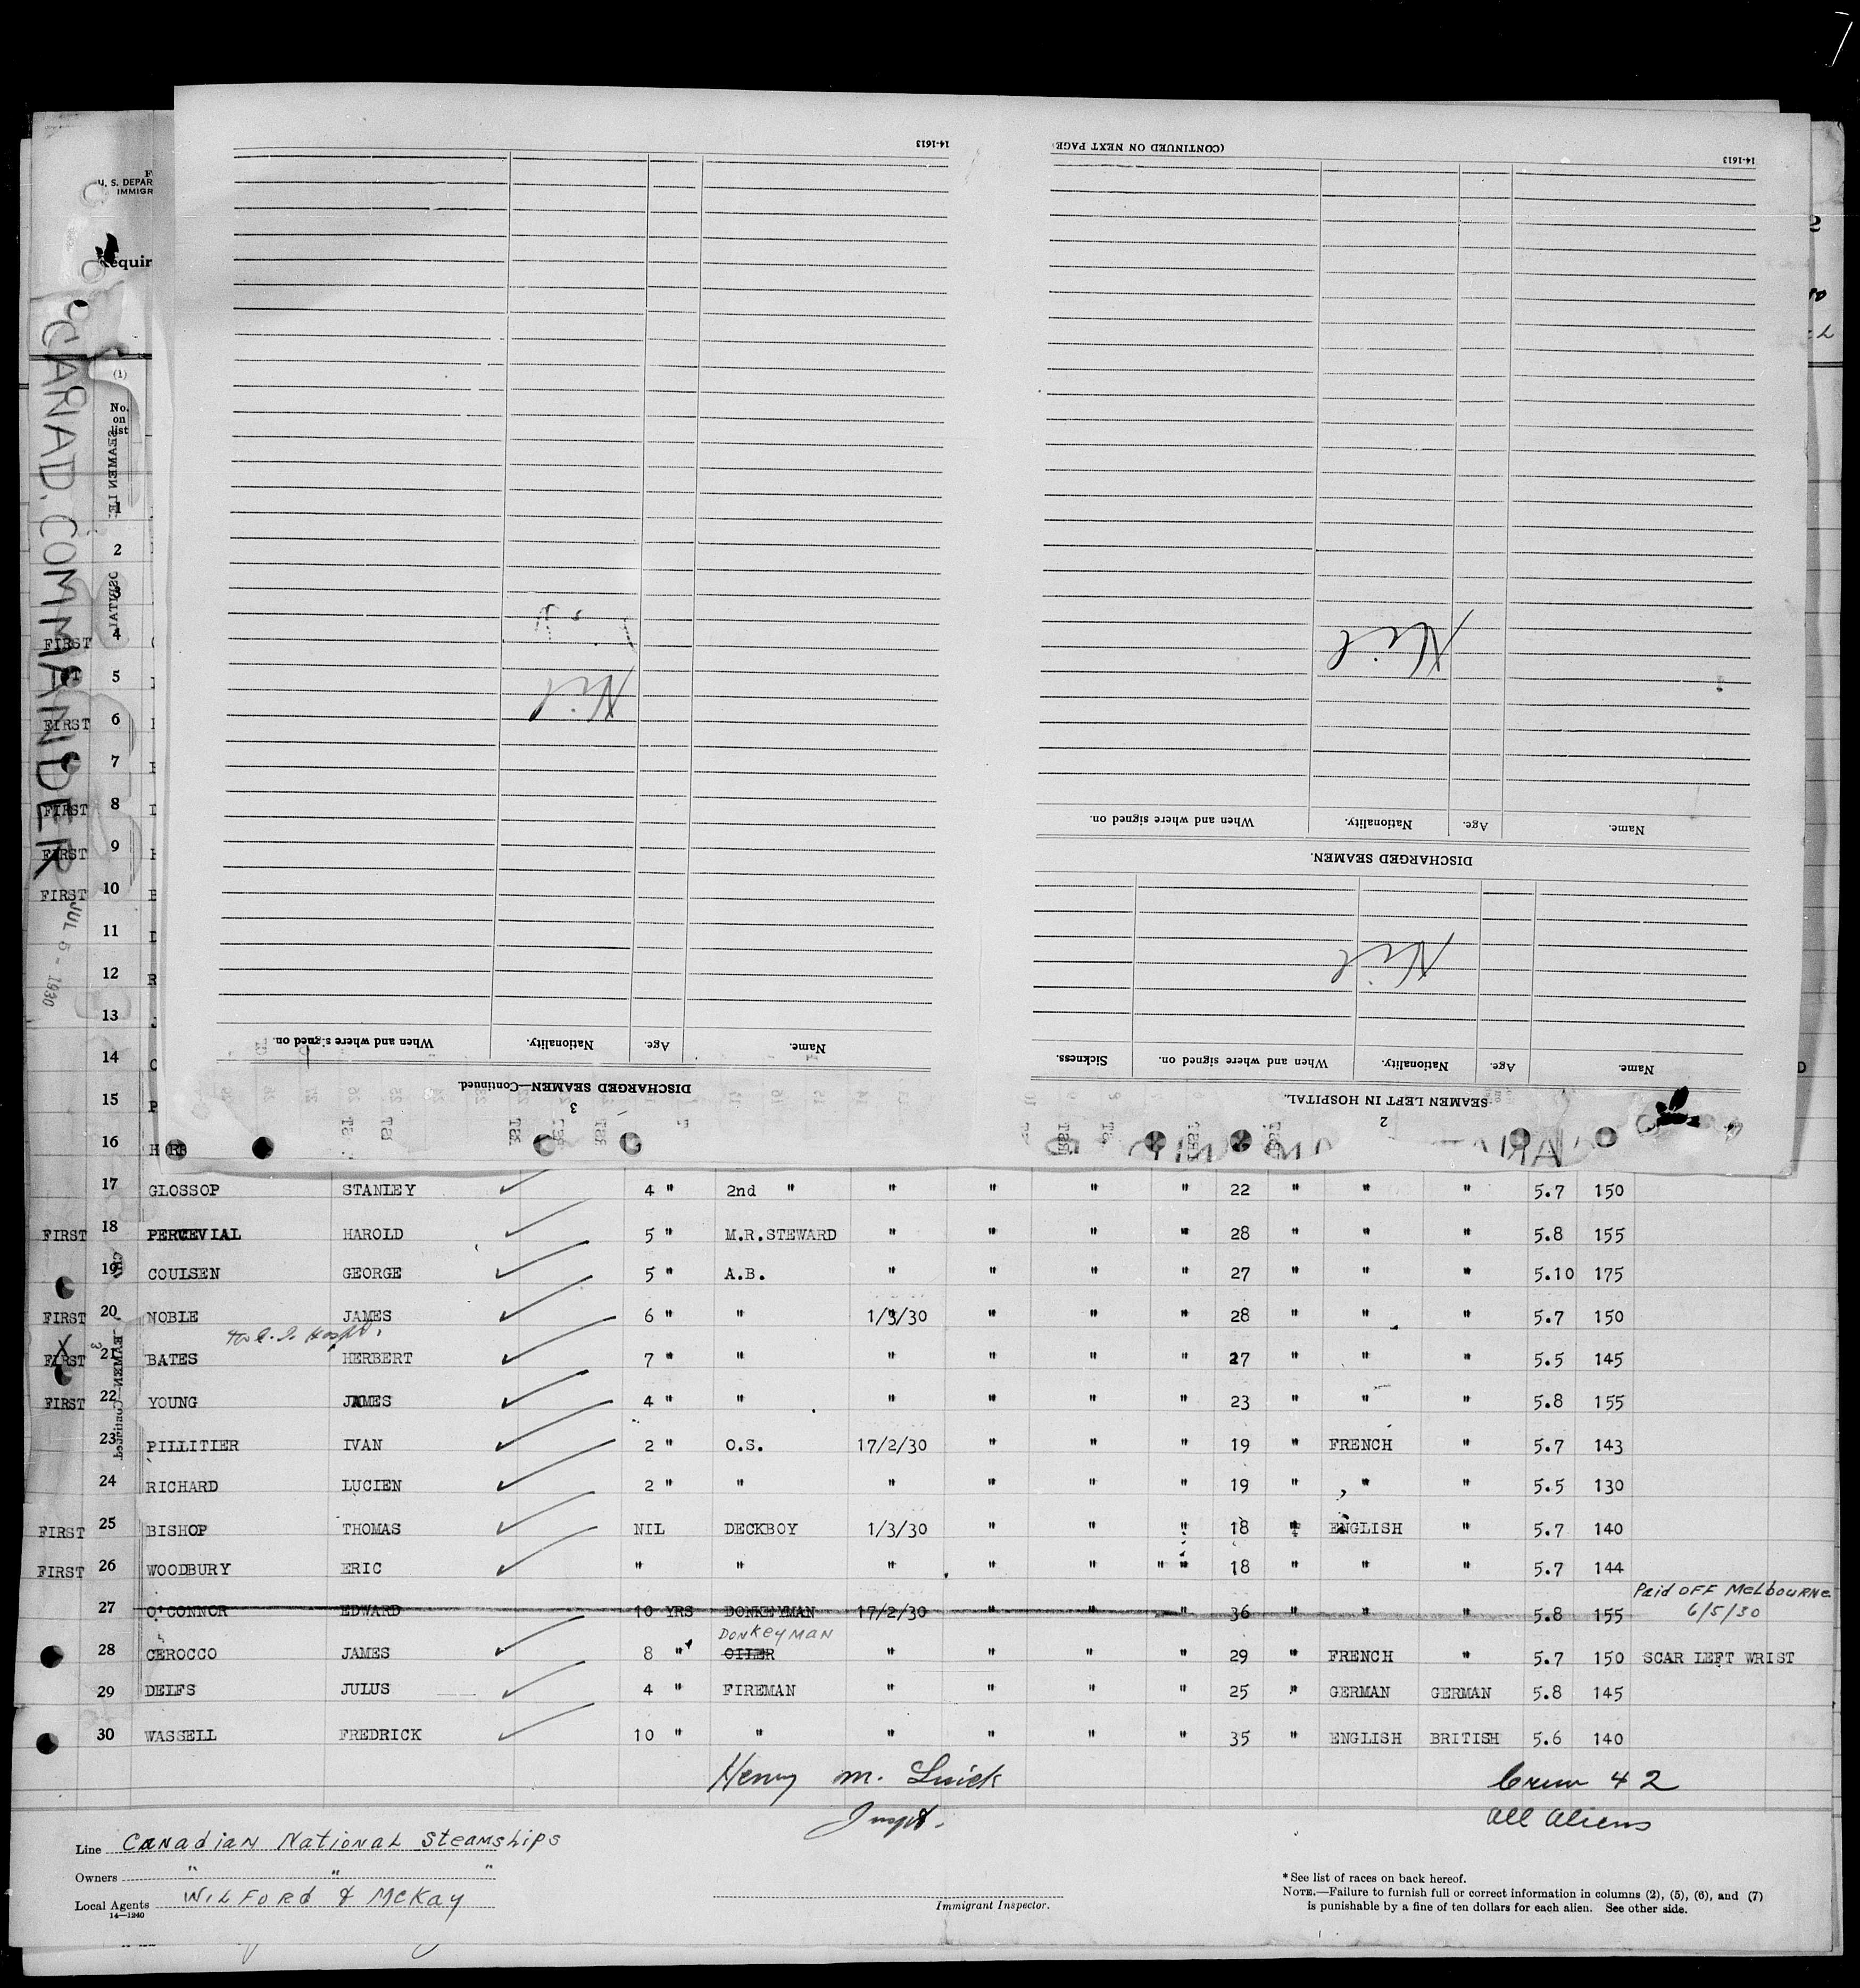 U. S. DEPAR
IMMIGR
equir
CANAD. COMMANDER
JUL 5 - 1930
14-1613
(CONTINUED ON NEXT PAGE
14-1613
Nil
Nil
When and where signed on. Nationality. Age. Name.
DISCHARGED SEAMEN.
Nil
When and where signed on. Nationality. Age. Name.
Sickness. When and where signed on. Nationality. Age. Name.
DISCHARGED SEAMEN—Continued.
3
SEAMEN LEFT IN HOSPITAL.
2
(1)
No. on list
1
2
3
FIRST 4
5
FIRST 6
7
FIRST 8
FIRST 9
FIRST 10
11
12
13
14
15
16
17 GLOSSOP STANLEY 4 " 2nd " " " " " 22 " " " 5.7 150
FIRST 18 PERCEVIAL HAROLD 5 " M.R.STEWARD " " " " 28 " " " 5.8 155
19 COULSEN GEORGE 5 " A.B. " " " " 27 " " " 5.10 175
FIRST 20 NOBLE JAMES 6 " " 1/3/30 " " " 28 " " " 5.7 150
Hospt.
FIRST 21 BATES HERBERT 7 " " " " " " 27 " " " 5.5 145
FIRST 22 YOUNG JAMES 4 " " " " " " 23 " " " 5.8 155
23 PILLITIER IVAN 2 " O.S. 17/2/30 " " " 19 " FRENCH " 5.7 143
24 RICHARD LUCIEN 2 " " " " " " 19 " " " 5.5 130
FIRST 25 BISHOP THOMAS NIL DECKBOY 1/3/30 " " " 18 " ENGLISH " 5.7 140
FIRST 26 WOODBURY ERIC " " " " " " " 18 " " " 5.7 144
27 O'CONNOR EDWARD 10 YRS DONKEYMAN 17/2/30 " " " 36 " " " 5.8 155 Paid OFF MELbOURNE
6/5/30
DONKEYMAN
28 CEROCCO JAMES 8 " OILER " " " " 29 " FRENCH " 5.7 150 SCAR LEFT WRIST
29 DELFS JULUS 4 " FIREMAN " " " " 25 " GERMAN GERMAN 5.8 145
30 WASSELL FREDRICK 10 " " " " " " 35 " ENGLISH BRITISH 5.6 140
Henry M.
Inspt.
Crew 42
All Aliens
Line CANadiAN NatiONAL SteAMShiPS
Owners " " "
Local Agents WILFORd & McKAy
14—1240
Immigrant Inspector.
* See list of races on back hereof.
NOTE.—Failure to furnish full or correct information in columns (2), (5), (6), and (7)
is punishable by a fine of ten dollars for each alien. See other side.